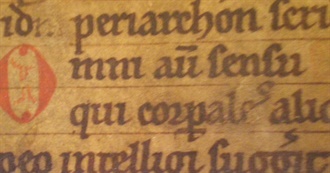 periarchon scri
Omni aū sensu
qui corpales alio
intelligi